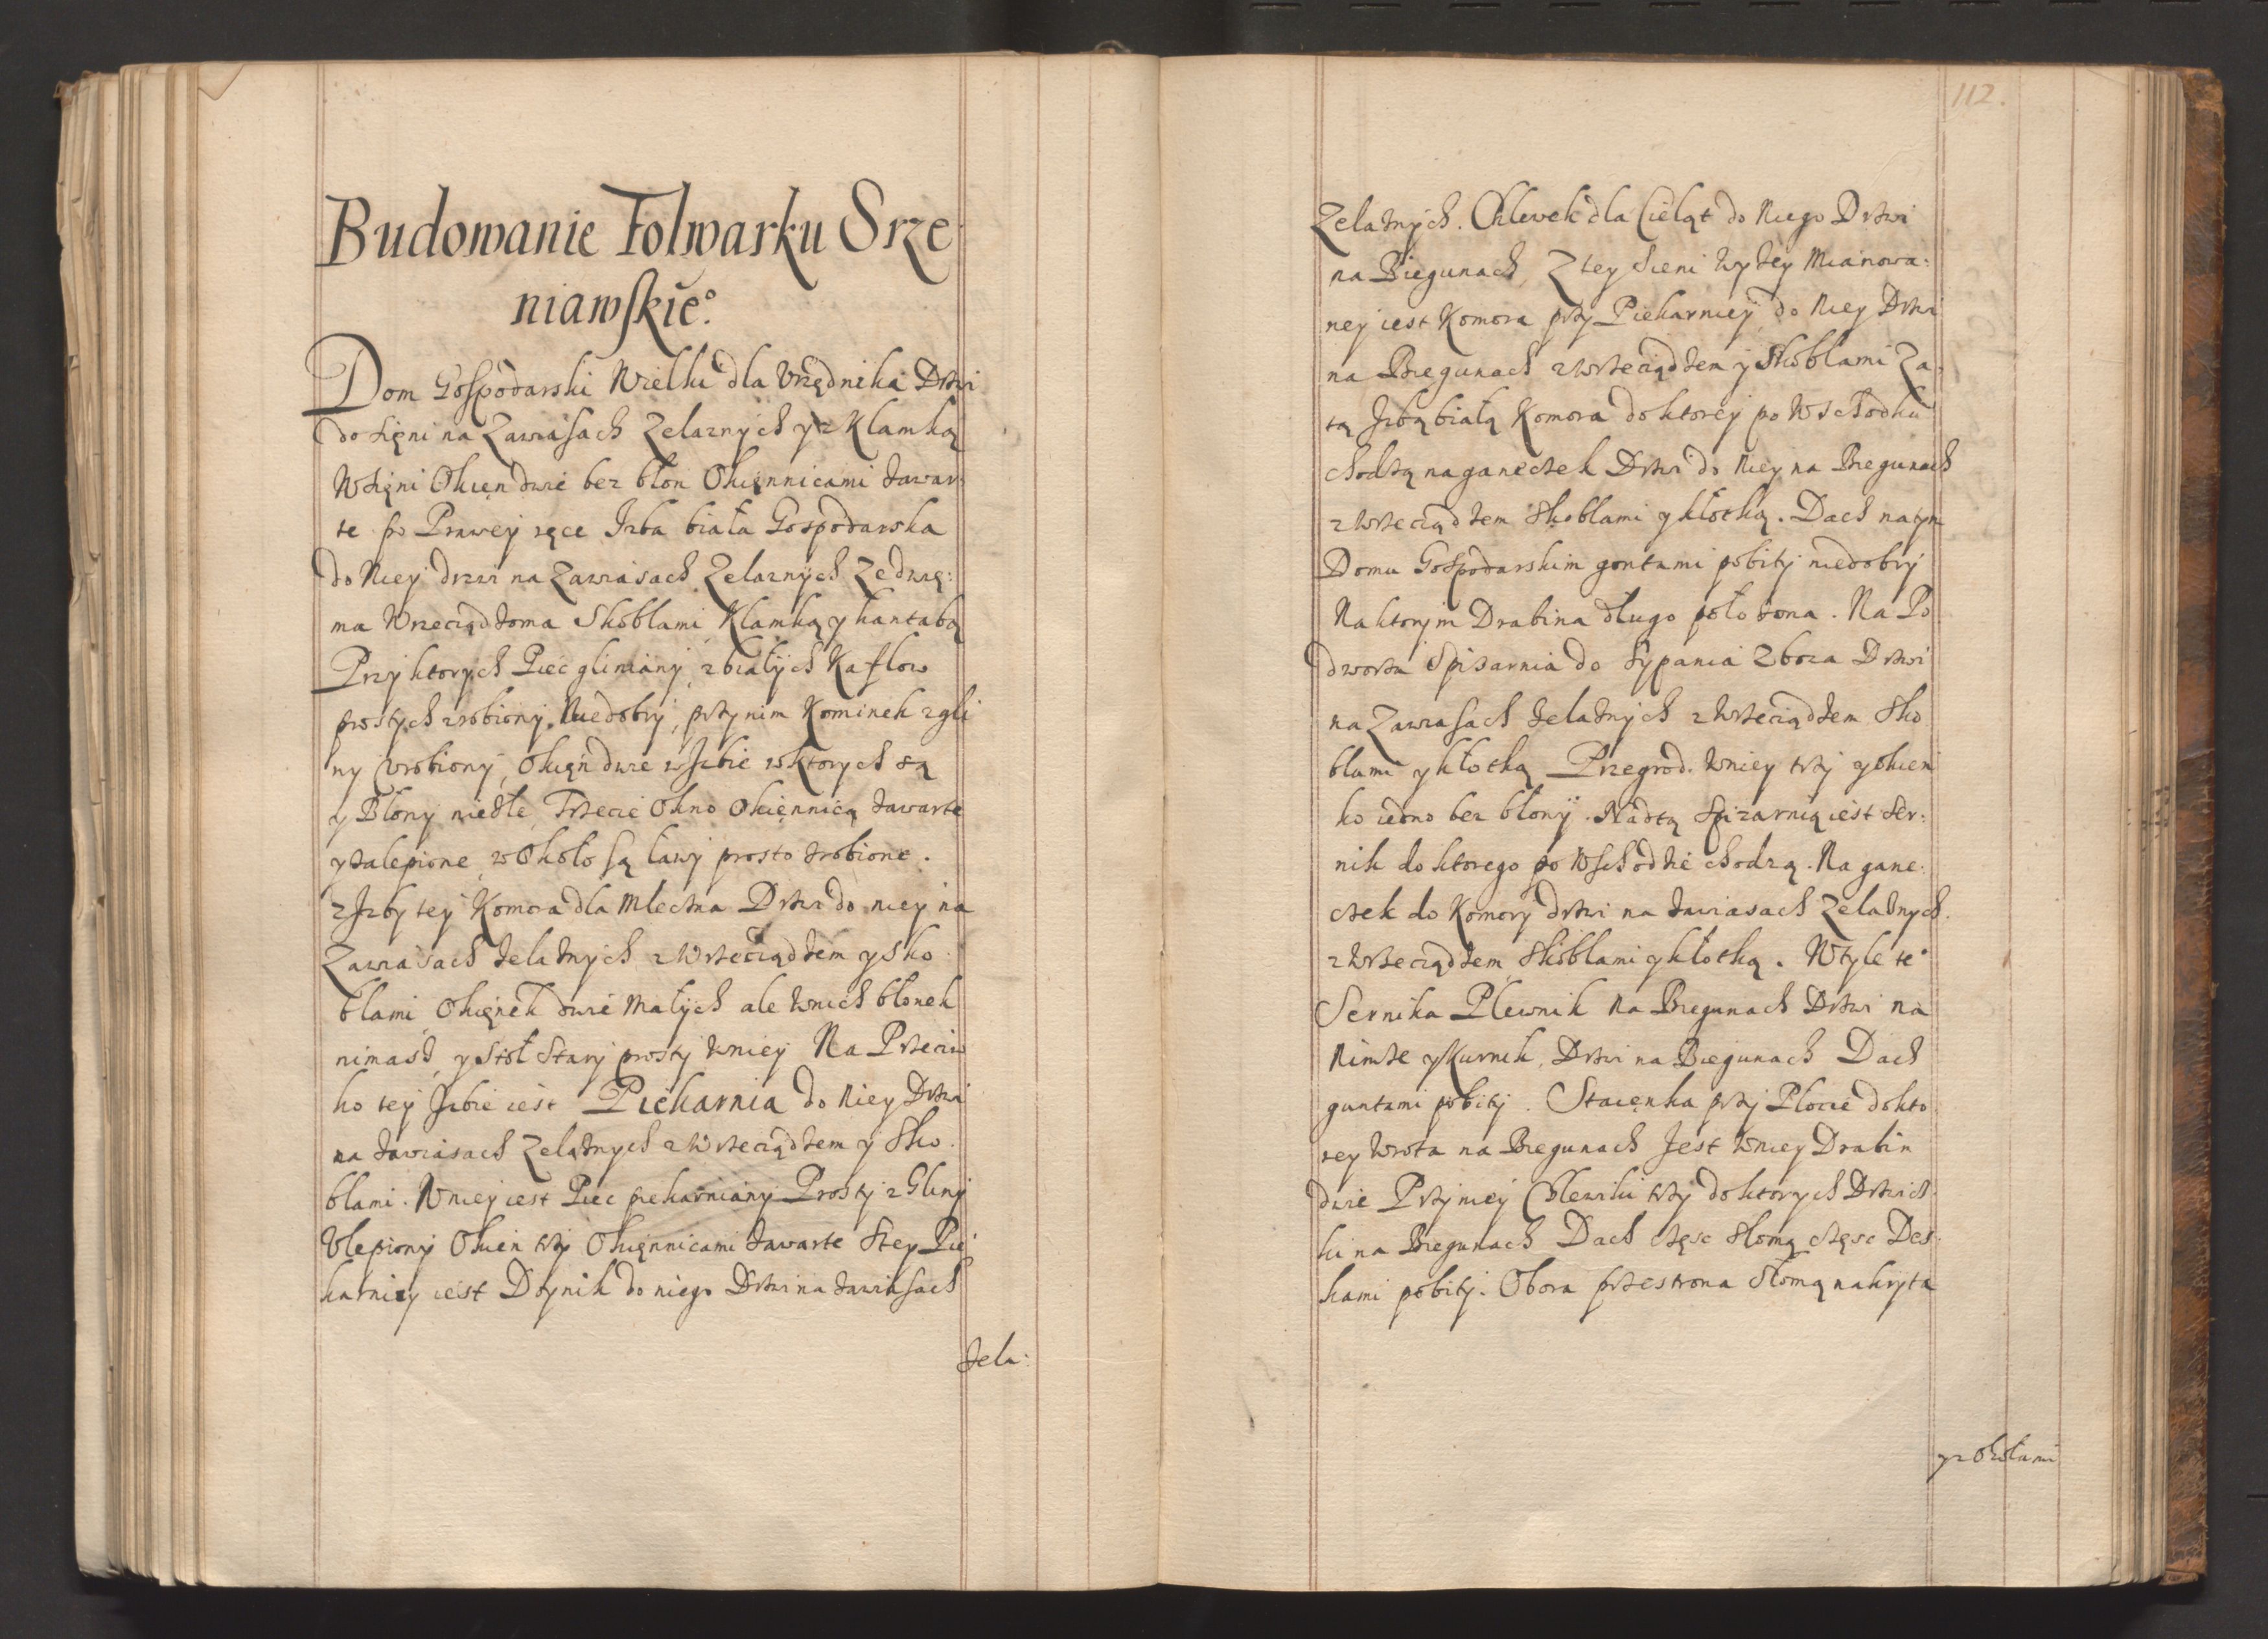 Budowanie Folwarku Srze
niawskie°.
Dom Gospodarski Wielki dla Vrzędnika Drzwi
do Sięni na Zawiasach Zelaznych y z Klamką
W Sięni Okięn dwie bez błon Okięnnicami zawar:
te po Prawey ręce Izba biała Gospodarska
do Niey drzwi na Zawiasach Zelaznych Ze dwię:
ma Wrzeciądzoma Skoblami Klamką y hantabą
Przy ktorych Piec gliniany z białych Kaflow
prostych zrobiony. Niedobry, przy nim Kominek z gli
ny Vrobiony, Okięn dwie w Izbie w ktorych są
y Błony niezłe, Trzecie Okno Okięnnicą zawarte
y zalepione, w Około są ławy prosto zrobione.
z Izby tey Komora dla Mleczna Drzwi do niey na
Zawiasach zelaznych z Wrzeciądzem y Sko
blami, Okięnek dwie Małych ale w nich błonek
nimasz, y Stół Stary prosty w niey Na Przeciw
ko tey Izbie iest Piekarnia do Niey Drzwi
na zawiasach Zelaznych z Wrzeciądzem y Sko
blami. W niey iest Piec piekarniany Prosty z Gliny
Vlepiony Okien trzy Okięnnicami zawarte Stey Pie
karniey iest Doynik do niego Drzwi na zawiasach
zela:
112.
Zelaznych. Chlewek dla Cieląt do Niego Drzwi
na Biegunach, Z tey Sieni wyzey Mianowa:
ney iest Komora przy Piekarniey do Niey Drzwi
na Biegunach z Wrzeciądzem y Skoblami Za
tą Izbą białą Komora do ktorey po Wschodku
chodzą na ganeczek Drzwi do Niey na Biegunach
z Wrzeciądzem Skoblami y kłotką. Dach na tym
Domu Gospodarskim gontami pobity niedobry
Na ktorym Drabina długo położona. Na Po
dworzu Spisarnia do Sypania Zboza Drzwi
na Zawiasach zelaznych z Wrzeciądzem Sko
blami y kłotką Przegrod. w niey trzy y okien
ko iedno bez błony. Nad tą Spizarnią iest Ser:
nik do ktorego po Wschodzie chodzą. Na gane:
czek do Komory drzwi na zawiasach Zelaznych.
z Wrzeciądzem Skoblami y kłotką. W tyle te°
Sernika Plewnik na Biegunach Drzwi na
Nimze y Kurnik, Drzwi na Biegunach Dach
guntami pobity. Staięnka przy Płocie do kto
rey Wrota na Biegunach Jest w niey Drabin
dwie Przy niey Chlewiki trzy do ktorych Drzwicz
ki na Biegunach Dach częsc słomą częsc Des:
kami pobity. Obora przestrona Słomą nakryta
y z Okołami